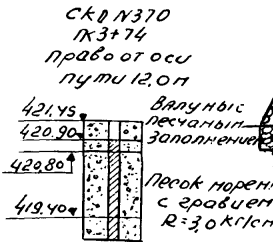 СКВ N370
ПК3+74
право от оси
пути 12,0м
421.45
420.90
420.80
419.40
Валуны с
песчаным
заполнением
Песок морен
с гравием
R=3,0 кг/см